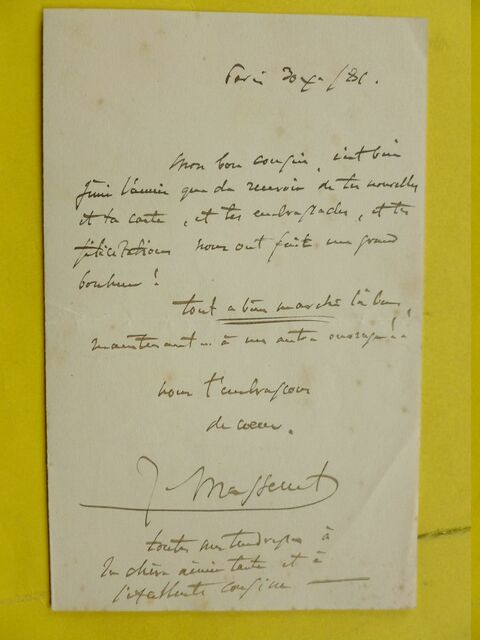 Paris 30 Xe /81.
mon bon cousin, c'est bien
finir l'année que de recevoir de tes nouvelles
et ta carte, et tes embrassades, et tes
félicitations nous ont fait un grand
bonheur!
tout a bien marché là bas,
maintenant... à un autre ouvrage!!
nous t'embrassons
de cœur.
J. Massenet
toutes mes tendresses à
ta chère aimée tante et à
l'excellente cousine